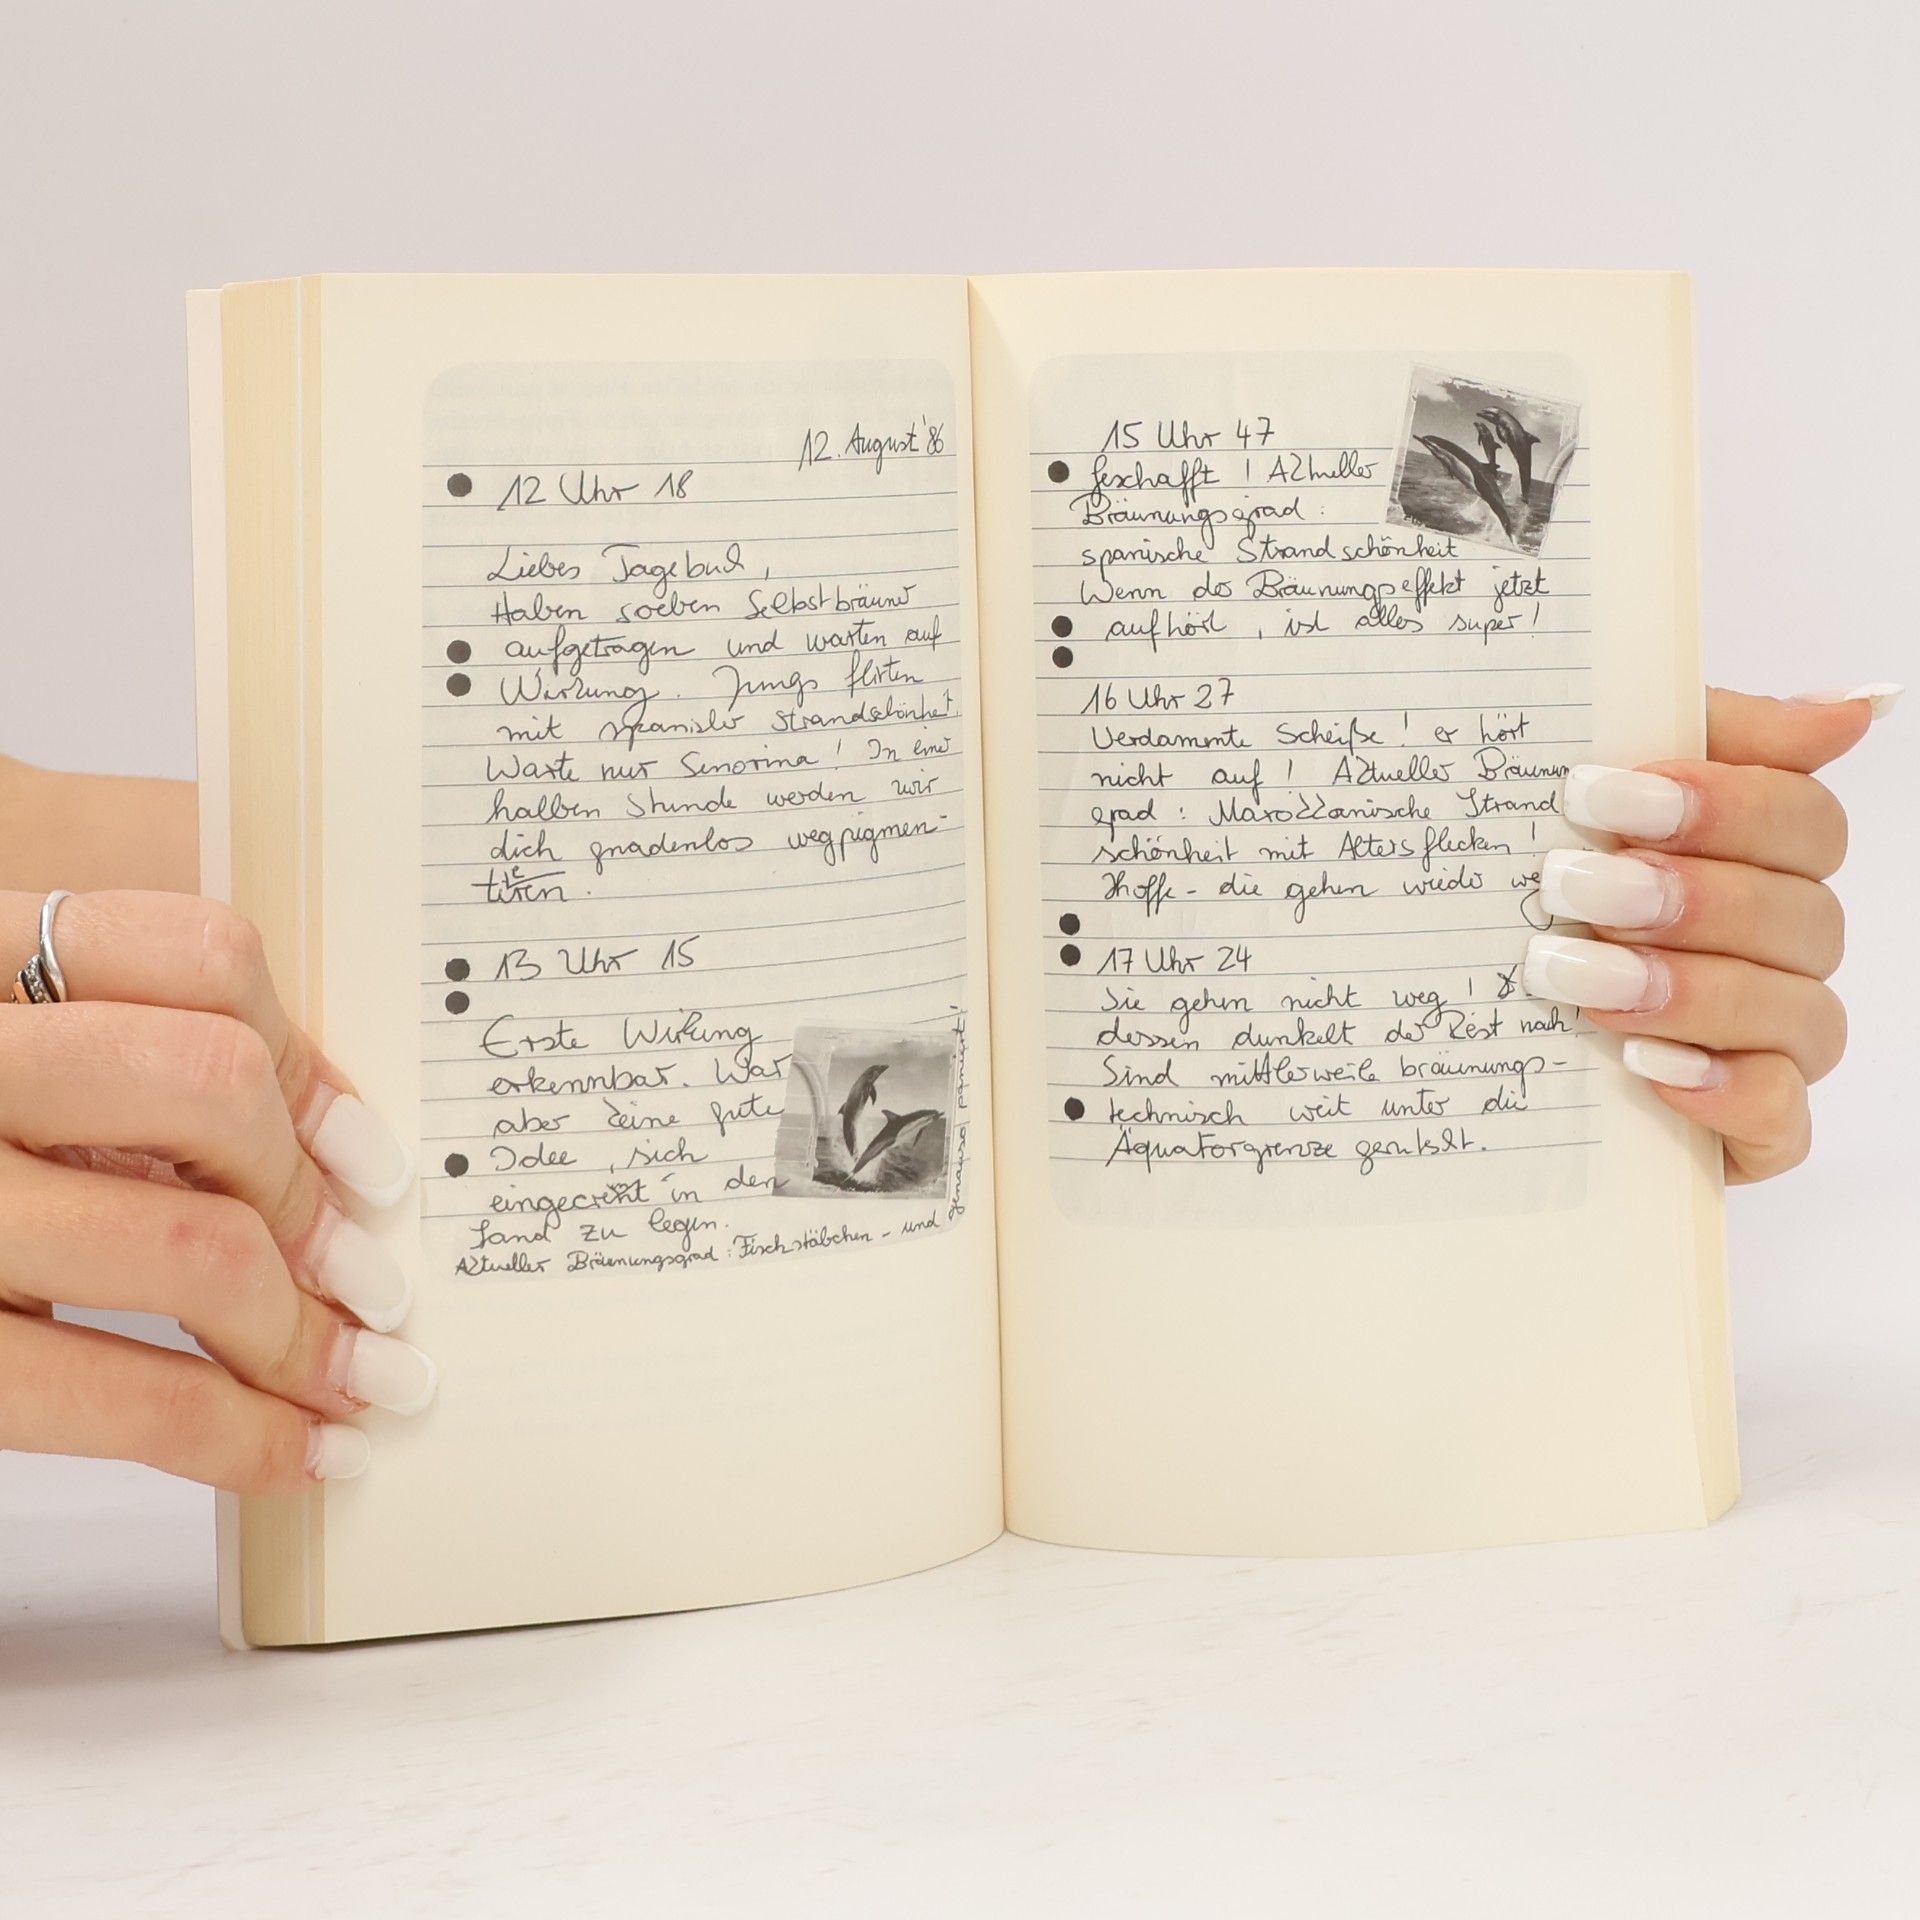 12. August '86
12 Uhr 18
Liebes Tagebuch,
Haben soeben Selbstbräuner
aufgetragen und warten auf
Wirkung. Jungs flirten
mit spanischer Strandschönheit.
Warte nur Senorina! In einer
halben Stunde werden wir
dich gnadenlos wegpigmen-
tieren.
13 Uhr 15
Erste Wirkung
erkennbar. War
aber keine gute
Idee, sich
eingecremt in den
Sand zu legen.
Aktueller Bräunungsgrad: Fischstäbchen - und
genauso paniert!
15 Uhr 47
Geschafft! Aktueller
Bräunungsgrad:
spanische Strandschönheit
Wenn der Bräunungseffekt jetzt
aufhört, ist alles super!
16 Uhr 27
Verdammte Scheiße! er hört
nicht auf! Aktueller Bräunun
grad: Marokkanische Strand
schönheit mit Altersflecken!
Hoffe - die gehen wieder we
17 Uhr 24
Sie gehen nicht weg!
dessen dunkelt der Rest nach!
Sind mittlerweile bräunungs-
technisch weit unter die
Äquatorgrenze gerutscht.